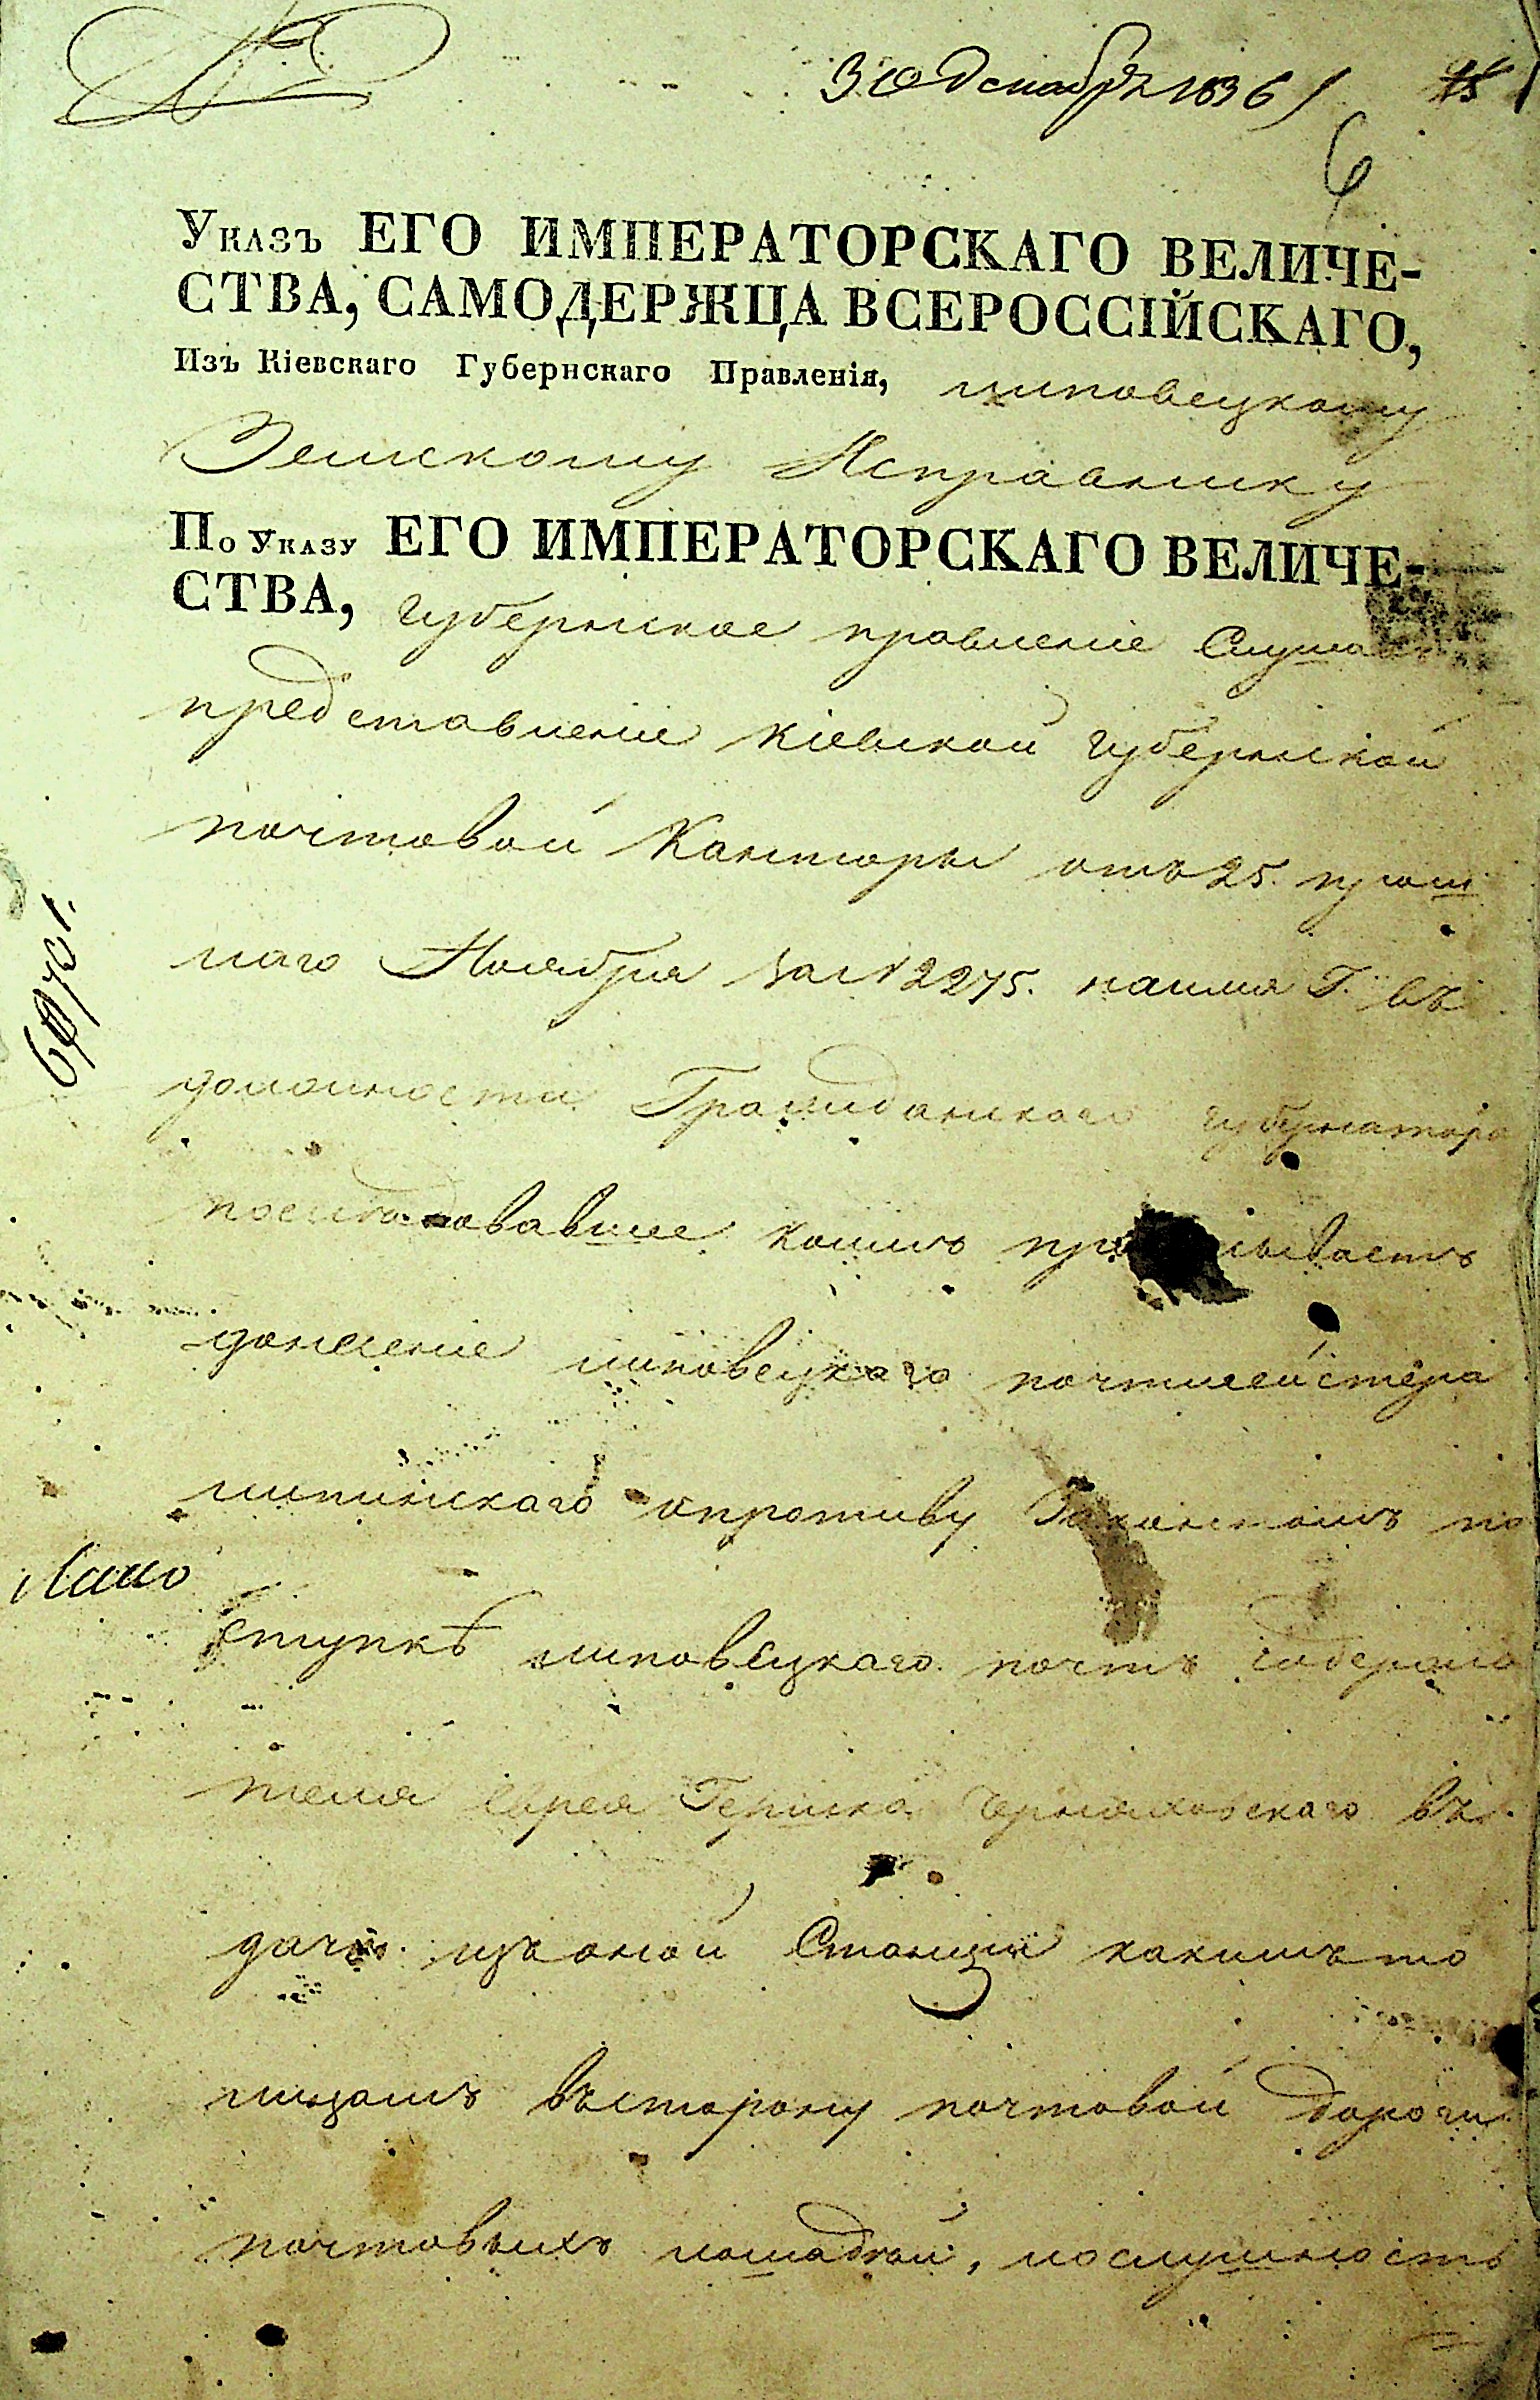 30 декабря 1836
6
Указъ ЕГО ИМПЕРАТОРСКАГО ВЕЛИЧЕ-
СТВА, САМОДЕРЖЦА ВСЕРОССІЙСКАГО,
Изъ Кіевскаго Губернскаго Правленія, липовецкому
Земскому Исправнику
По Указу ЕГО ИМПЕРАТОРСКАГО ВЕЛИЧЕ-
СТВА, губернское правленіе Слушав
представленіе кіевской губернской
почтовой Конторы отъ 25. прош
лаго Ноября за № 2275. на имя Г. въ
должности Гражданскаго губернатора
последовавшее коимъ пр сываетъ
донесеніе липовецкаго почтмейстера
липинскаго опротиву Законномъ по
ступкѣ липовецкаго почтъ содержа
теля еврея Гершка Черняховскаго въ
дачи изъ оной Станціи какимъ то
лицамъ въ сторону почтовой дороги
почтовыхъ лошадей, послушность